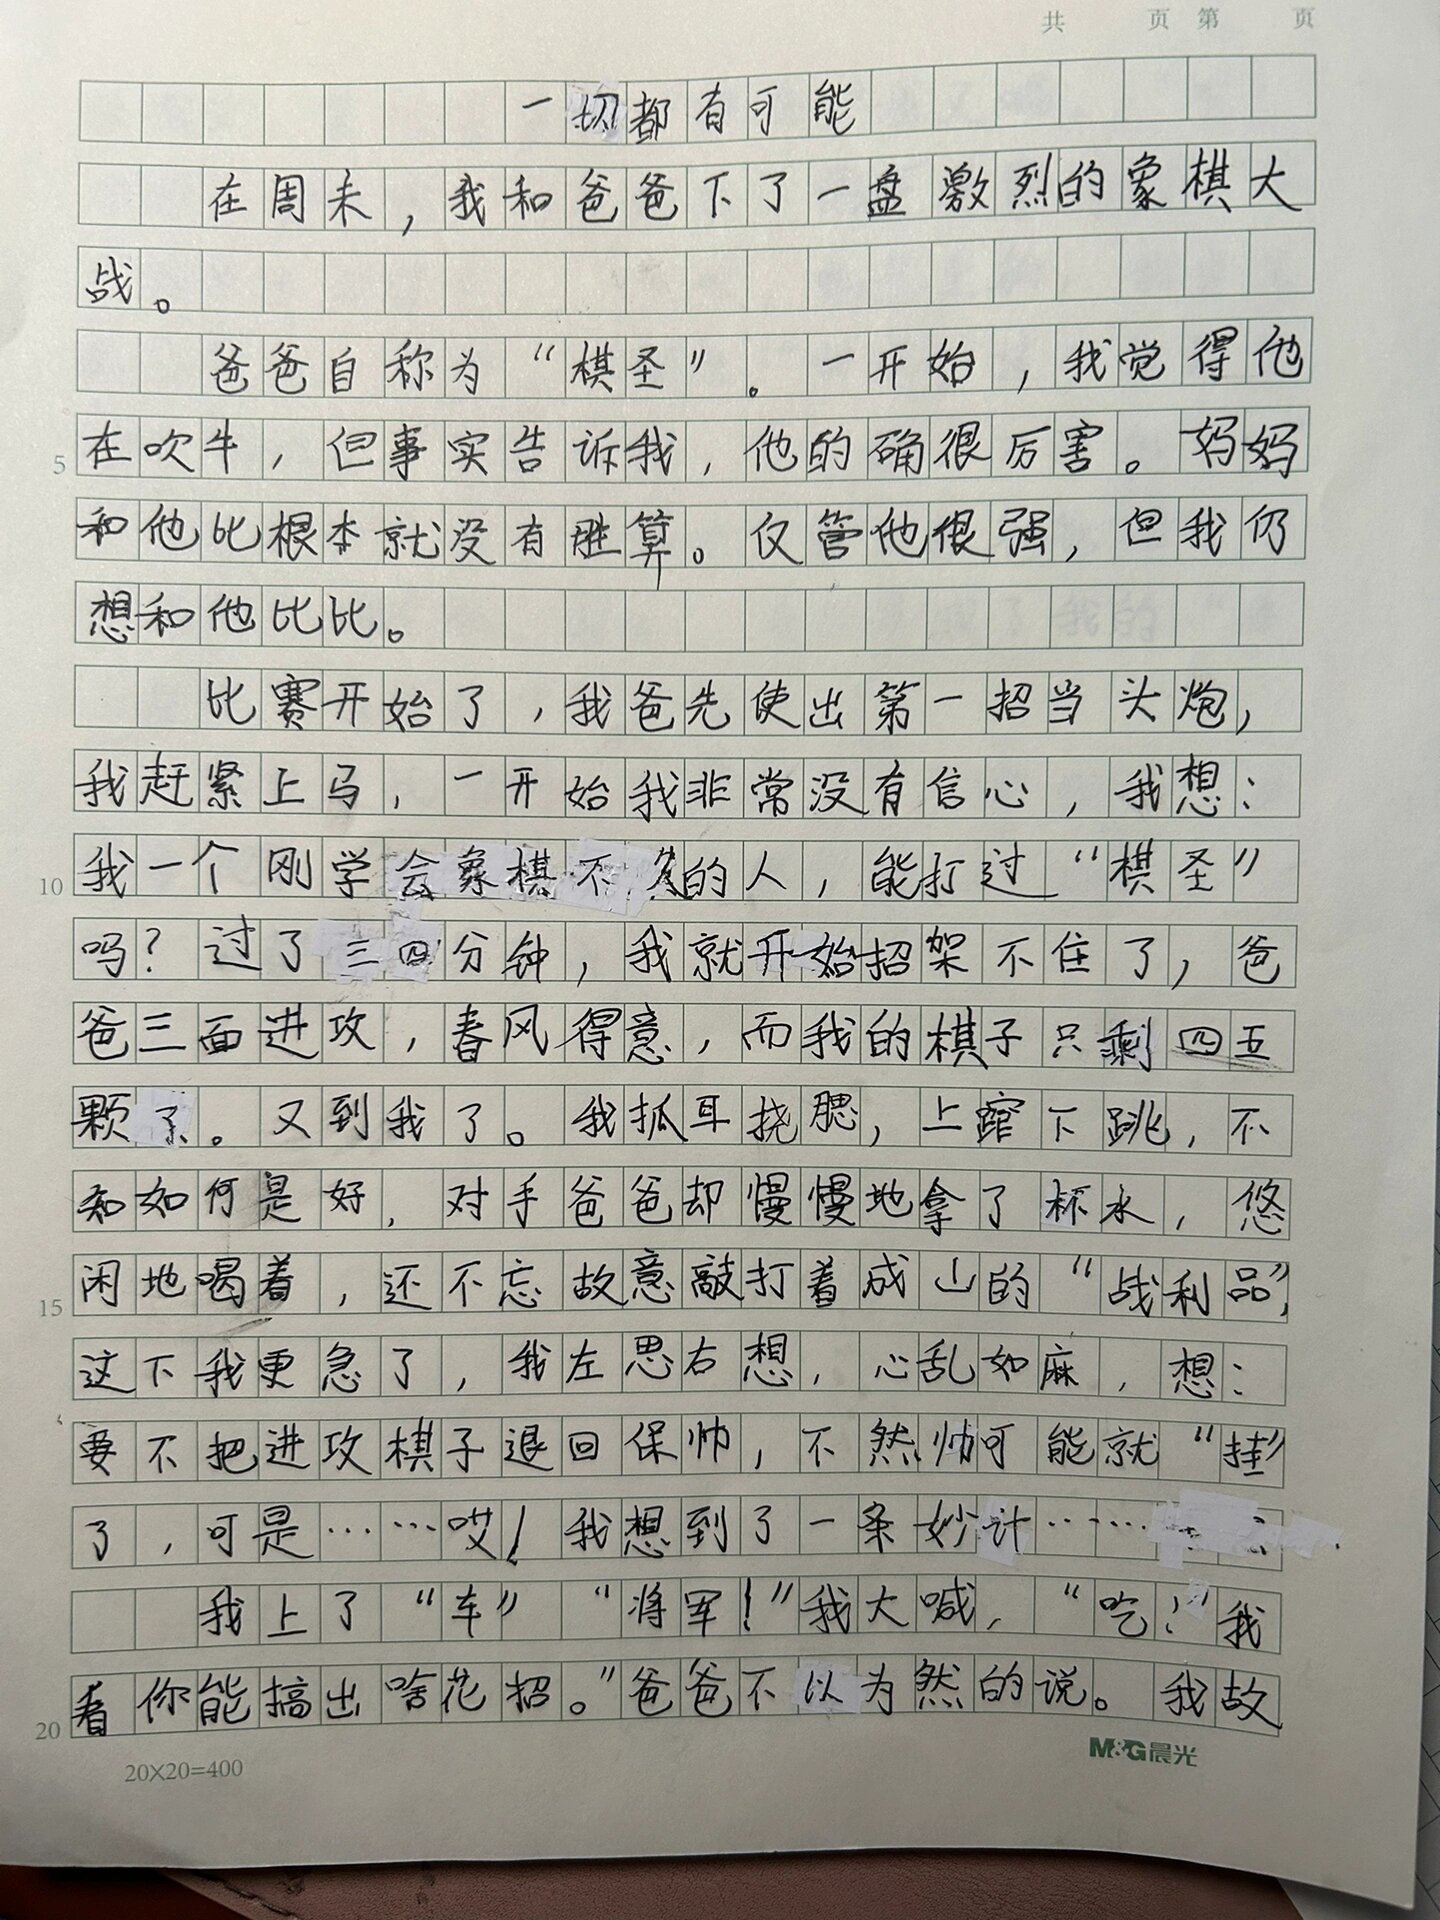 共 页 第 页
一切都有可能
在周未，我和爸爸下了一盘激烈的象棋大
战。
爸爸自称为“棋圣”。一开始，我觉得他
5 在吹牛，但事实告诉我，他的确很厉害。妈妈
和他比根本就没有胜算。仅管他很强，但我仍
想和他比比。
比赛开始了，我爸先使出第一招当头炮，
我赶紧上马，一开始我非常没有信心，我想：
10 我一个刚学会象棋不久的人，能打过“棋圣”
吗？过了三四分钟，我就开始招架不住了，爸
爸三面进攻，春风得意，而我的棋子只剩四五
颗了。又到我了。我抓耳挠腮，上蹿下跳，不
知如何是好，对手爸爸却慢慢地拿了杯水，悠
15 闲地喝着，还不忘故意敲打着成山的“战利品”，
这下我更急了，我左思右想，心乱如麻，想：
要不把进攻棋子退回保帅，不然帅可能就“挂”
了，可是……哎！我想到了一条妙计……
我上了“车”“将军！”我大喊，“吃！我
20 看你能搞出啥花招。”爸爸不以为然的说。我故
20×20=400
M&G晨光